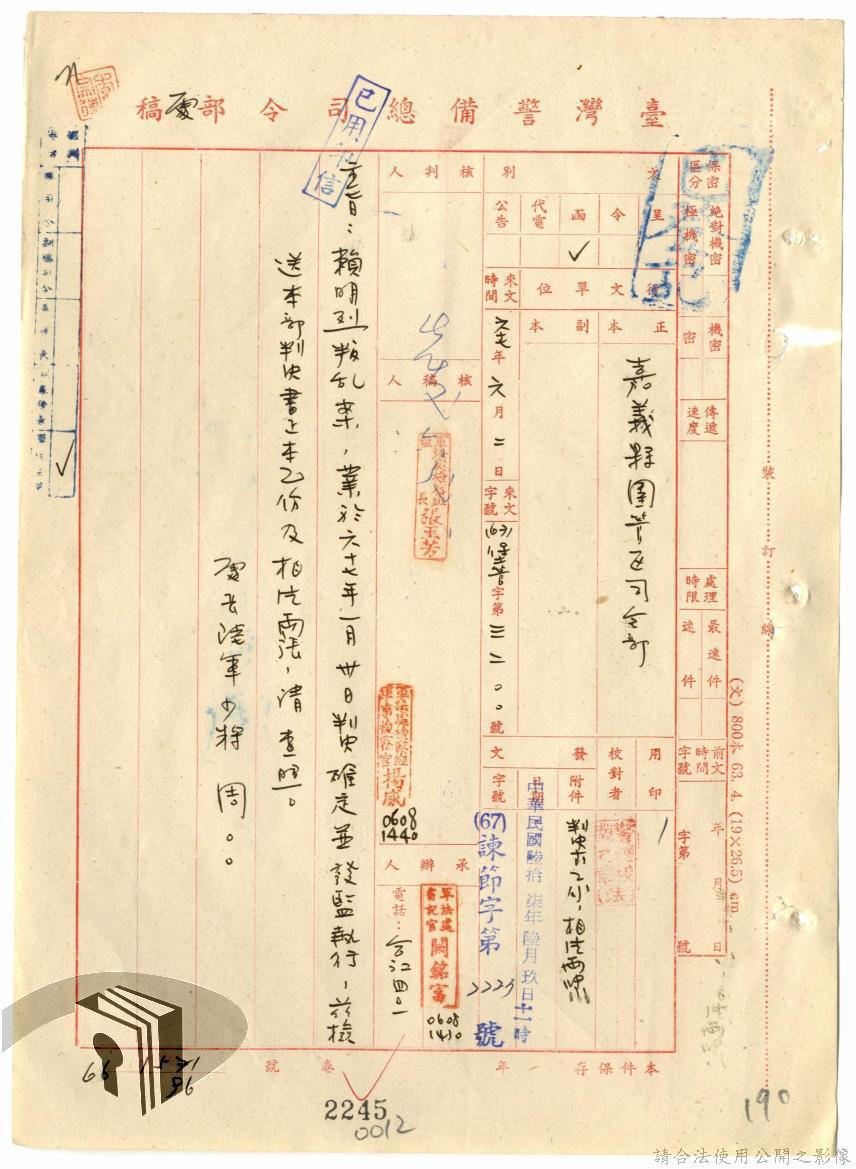 臺灣警備總司令部處稿
已用印信
保密區分
絕對機密
極機密
機密
密
傳遞速度
處理時限
最速件
速件
前文時間字號
年 月 日
字第 號
文別
呈
令
函 ✓
代電
公告
行文單位
正本
嘉義縣團管區司令部
副本
來文時間
六七年六月二日
來文字號
字第三二〇〇號
用印
校對者
發文
附件
日期
中華民國陸拾柒年陸月玖日十一時
字號
(67)諫節字第2223號
核判人
核稿人
張玉芳
軍法處檢察組
軍事檢察官楊威
0608
1440
承辦人
軍法處書記官闕銘富
0608
1410
電話：
主旨：賴明烈叛乱案，業於六十七年一月卅日判決確定並發監執行，茲檢
送本部判決書正本乙份及相片兩張，請查照。
處長陸軍少將周〇〇
本件保存 年
卷號
裝訂線
(文) 800本 63. 4. (19×26.5) cm
2245
0012
190
請合法使用公開之影像